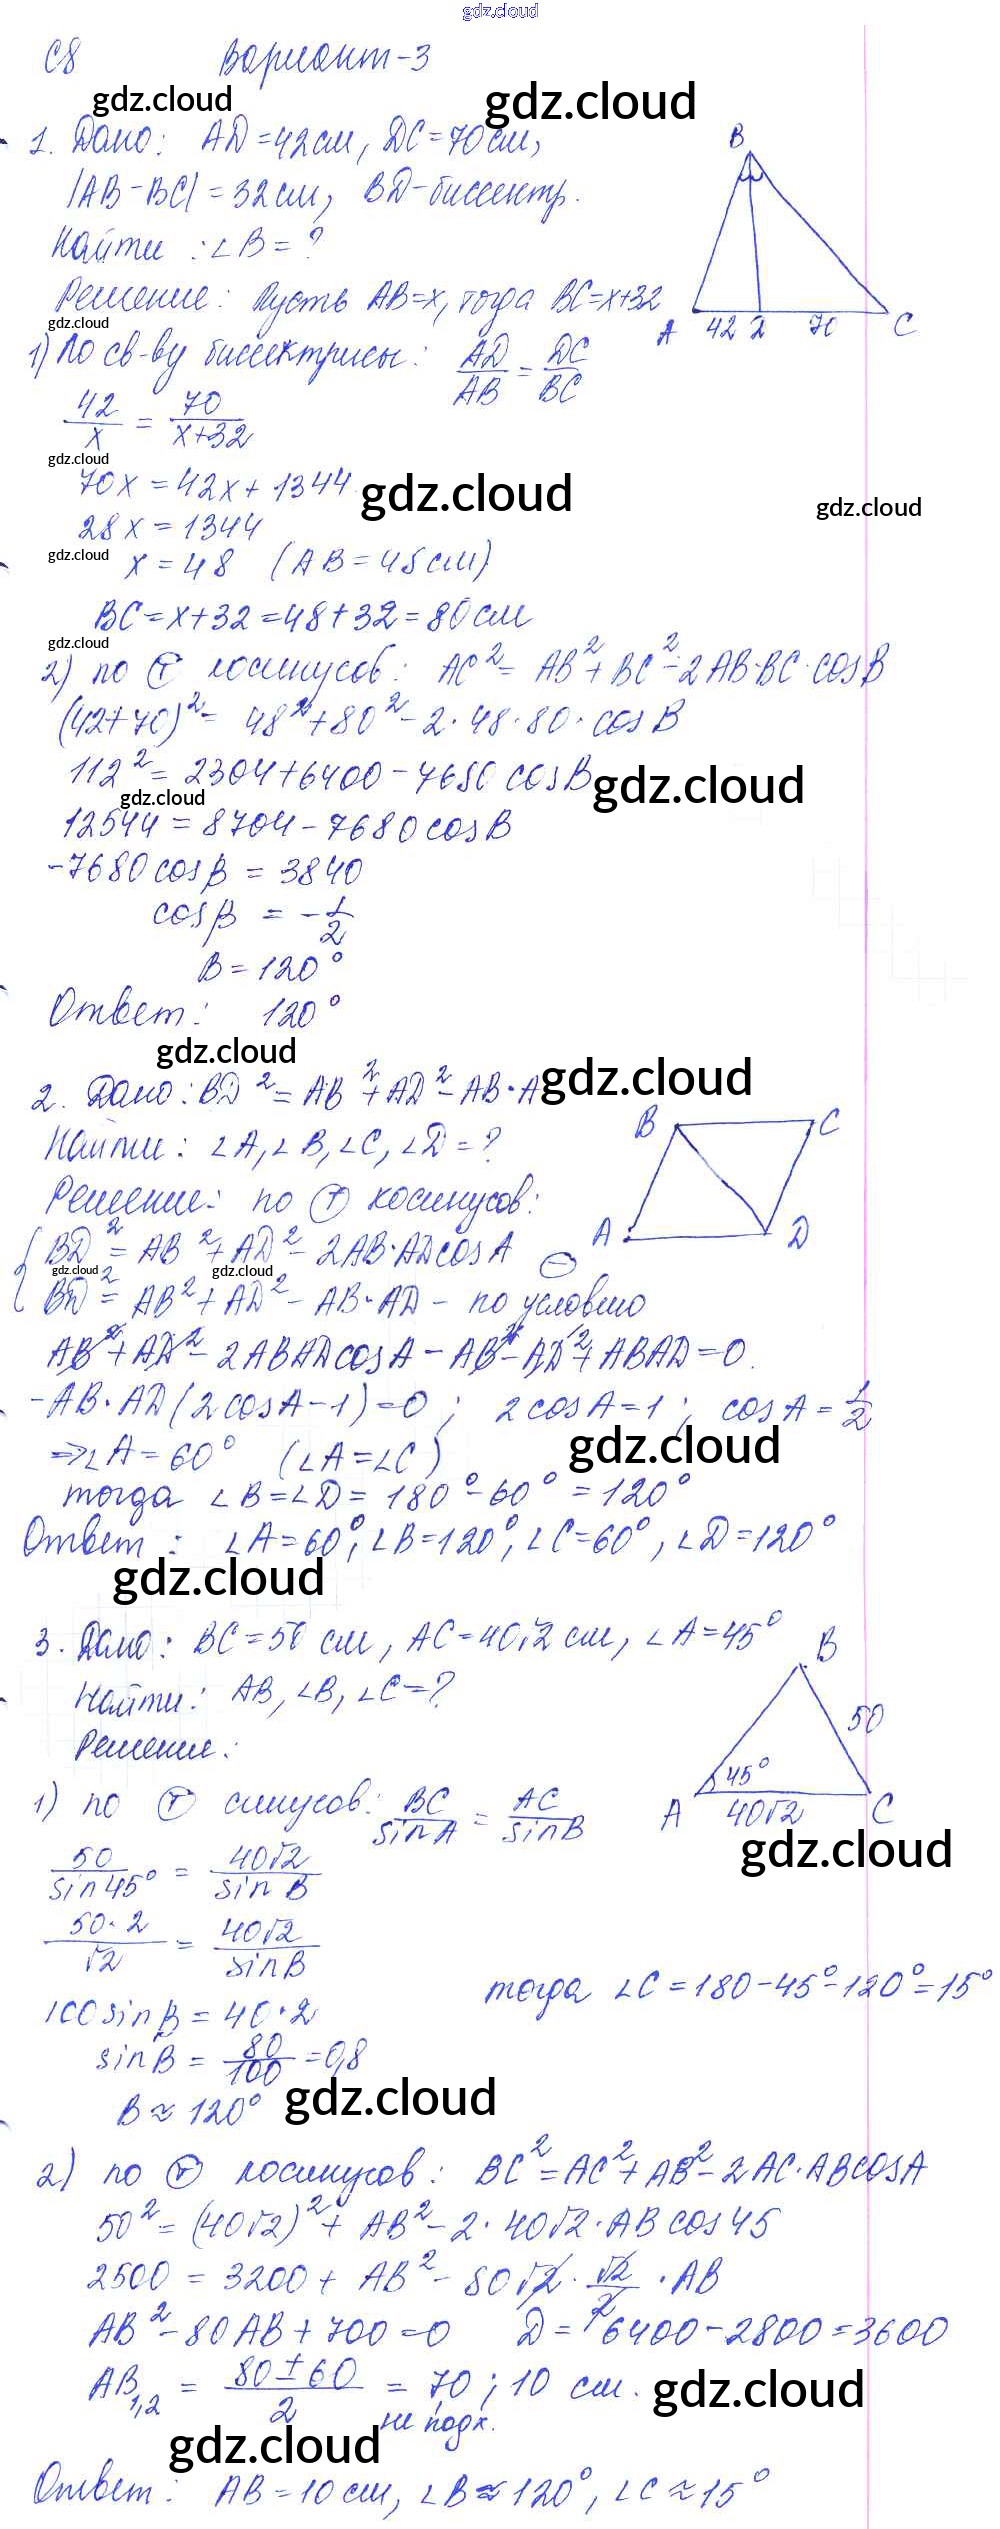 gdz.cloud
С8 Вариант-3
gdz.cloud gdz.cloud
1. Дано: AD=42см, DC=70см,
|AB-BC|=32см, BD-биссектр.
Найти: ∠B=?
Решение: Пусть AB=x, тогда BC=x+32
B
A 42 D 70 C
gdz.cloud
1) По св-ву биссектрисы: AD/AB = DC/BC
42/x = 70/(x+32)
gdz.cloud
70x=42x+1344
gdz.cloud gdz.cloud
28x=1344
gdz.cloud
x=48 (AB=48см)
BC=x+32=48+32=80см
gdz.cloud
2) по Ⓣ косинусов: AC²=AB²+BC²-2AB·BC·cosB
(42+70)²=48²+80²-2·48·80·cosB
112²=2304+6400-7680cosB
gdz.cloud gdz.cloud
12544=8704-7680cosB
-7680cosβ=3840
cosβ=-1/2
B=120°
Ответ: 120°
gdz.cloud gdz.cloud
2. Дано: BD²=AB²+AD²-AB·A
Найти: ∠A,∠B,∠C,∠D=?
B C
A D
Решение: по Ⓣ косинусов:
{BD²=AB²+AD²-2AB·ADcosA
gdz.cloud gdz.cloud
BD²=AB²+AD²-AB·AD - по условию ⊖
AB²+AD²-2ABADcosA-AB²-AD²+ABAD=0.
-AB·AD(2cosA-1)=0; 2cosA=1; cosA=1/2
⇒∠A=60° (∠A=∠C)
gdz.cloud
тогда ∠B=∠D=180°-60°=120°
Ответ: ∠A=60°,∠B=120°,∠C=60°,∠D=120°
gdz.cloud
3. Дано: BC=50 см, AC=40√2 см, ∠A=45°
Найти: AB,∠B,∠C=?
Решение:
B
50
45°
A 40√2 C
gdz.cloud
1) по Ⓣ синусов: BC/sinA = AC/sinB
50/sin45° = 40√2/sinB
50·2/√2 = 40√2/sinB
тогда ∠C=180-45°-120°=15°
100sinB=40·2
sinB=80/100=0,8
B≈120°
gdz.cloud
2) по Ⓣ косинусов: BC²=AC²+AB²-2AC·ABcosA
50²=(40√2)²+AB²-2·40√2·ABcos45
2500=3200+AB²-80√2·√2/2·AB
AB²-80AB+700=0 D=6400-2800=3600
AB₁,₂=(80±60)/2=70;10 см.
не подх.
gdz.cloud gdz.cloud
Ответ: AB=10см,∠B≈120°,∠C≈15°